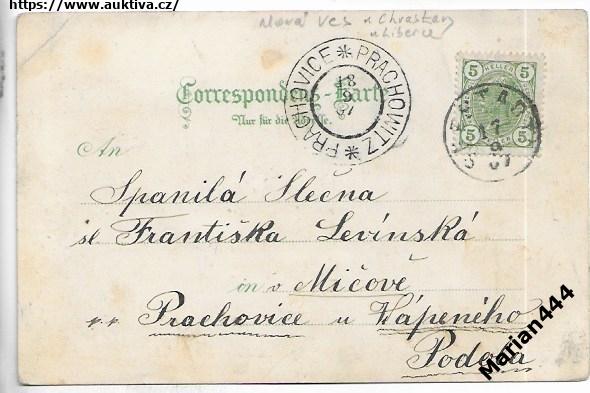 https://www.auktiva.cz/
Nová Ves u Chrastavy
u Liberce
Correspondenz-Karte
Nur für die Adresse.
PRACHOVICE * PRACHOWITZ *
18
9
07
5 HELLER 5
5 5
17
9
07
An
Spanilá Slečna
sl Františka Levínská
in v Míčově
" " Prachovice u Vápeného
Podola
Marian444